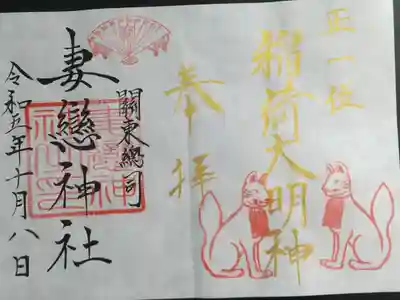 正一位
稲荷大明神
奉拝
關東總司
妻戀神社
令和五年十月八日